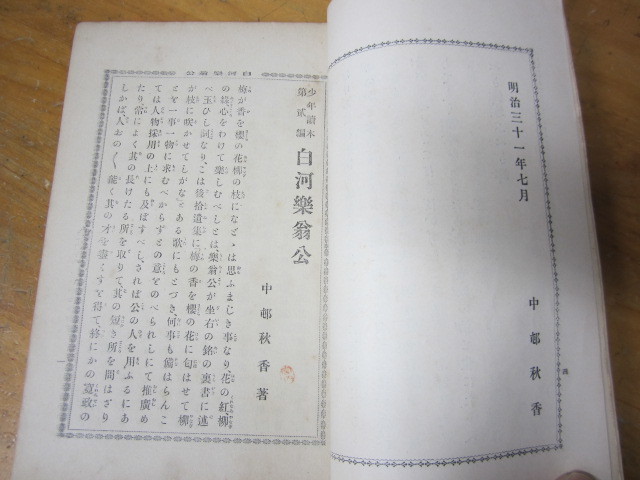 明治三十一年七月
中邨秋香
少年讀本
第貳編
白河樂翁公
中邨秋香著
梅が香を櫻の花柳の枝になど、は思ふまじき事なり、花の紅柳
の緑心をわけて樂しむべしとは、樂翁公が坐右の銘の裏書に述
べ玉ひし詞なり、こは後拾遺集に「梅の香を櫻の花に匂はせて柳
が枝に咲かせてしがな」とある歌にもとづき、何事も備はらんこ
とを一事一物に求むべからずとの意をのべられしにて推廣め
ては人物採用の上にも及ぼすべし、されば公の人を用ふるにあ
たり、常によく其の長けたる所を取りて、其の短き所を問はざり
しかば人おの〱能く其の才を盡くすを得て、終にかの寛政の